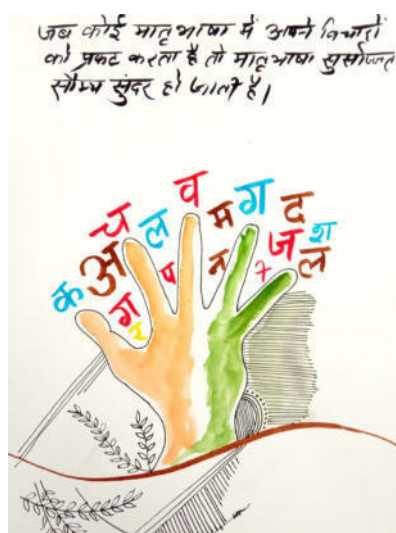 जब कोई मातृभाषा में अपने विचारों
को प्रकट करता है तो मातृभाषा सुसज्जित
सौम्य सुंदर हो जाती है।
च व ग द
क अ ल म ज श
ग र प न ल